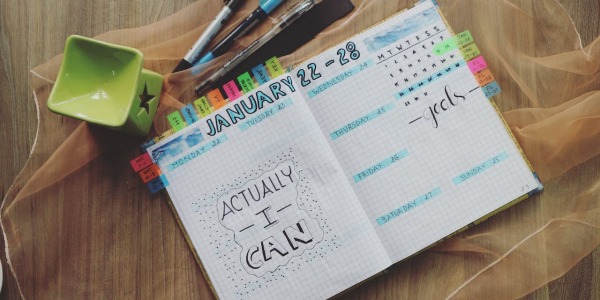 JANUARY 22 - 28
M T W T F S S
MONDAY 22
TUESDAY 23
WEDNESDAY 24
- goals -
THURSDAY 25
ACTUALLY
- I -
CAN
FRIDAY 26
SATURDAY 27
SUNDAY 28